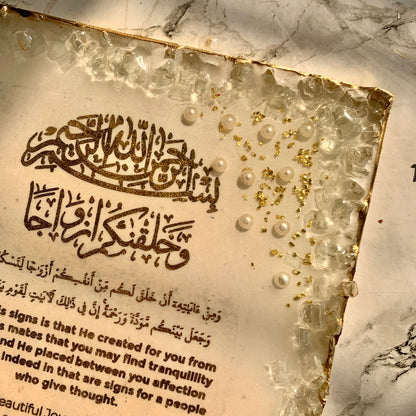 بسم الله الرحمن الرحيم
وخلقنكم ازواجا
وَمِنْ ءَايَـٰتِهِۦٓ أَنْ خَلَقَ لَكُم مِّنْ أَنفُسِكُمْ أَزْوَٰجًا لِّتَسْكُ
وَجَعَلَ بَيْنَكُم مَّوَدَّةً وَرَحْمَةً إِنَّ فِى ذَٰلِكَ لَـَٔايَـٰتٍ لِّقَوْمٍ
s signs is that He created for you from
s mates that you may find tranquility
nd He placed between you affection
Indeed in that are signs for a people
who give thought.
eautiful Jo